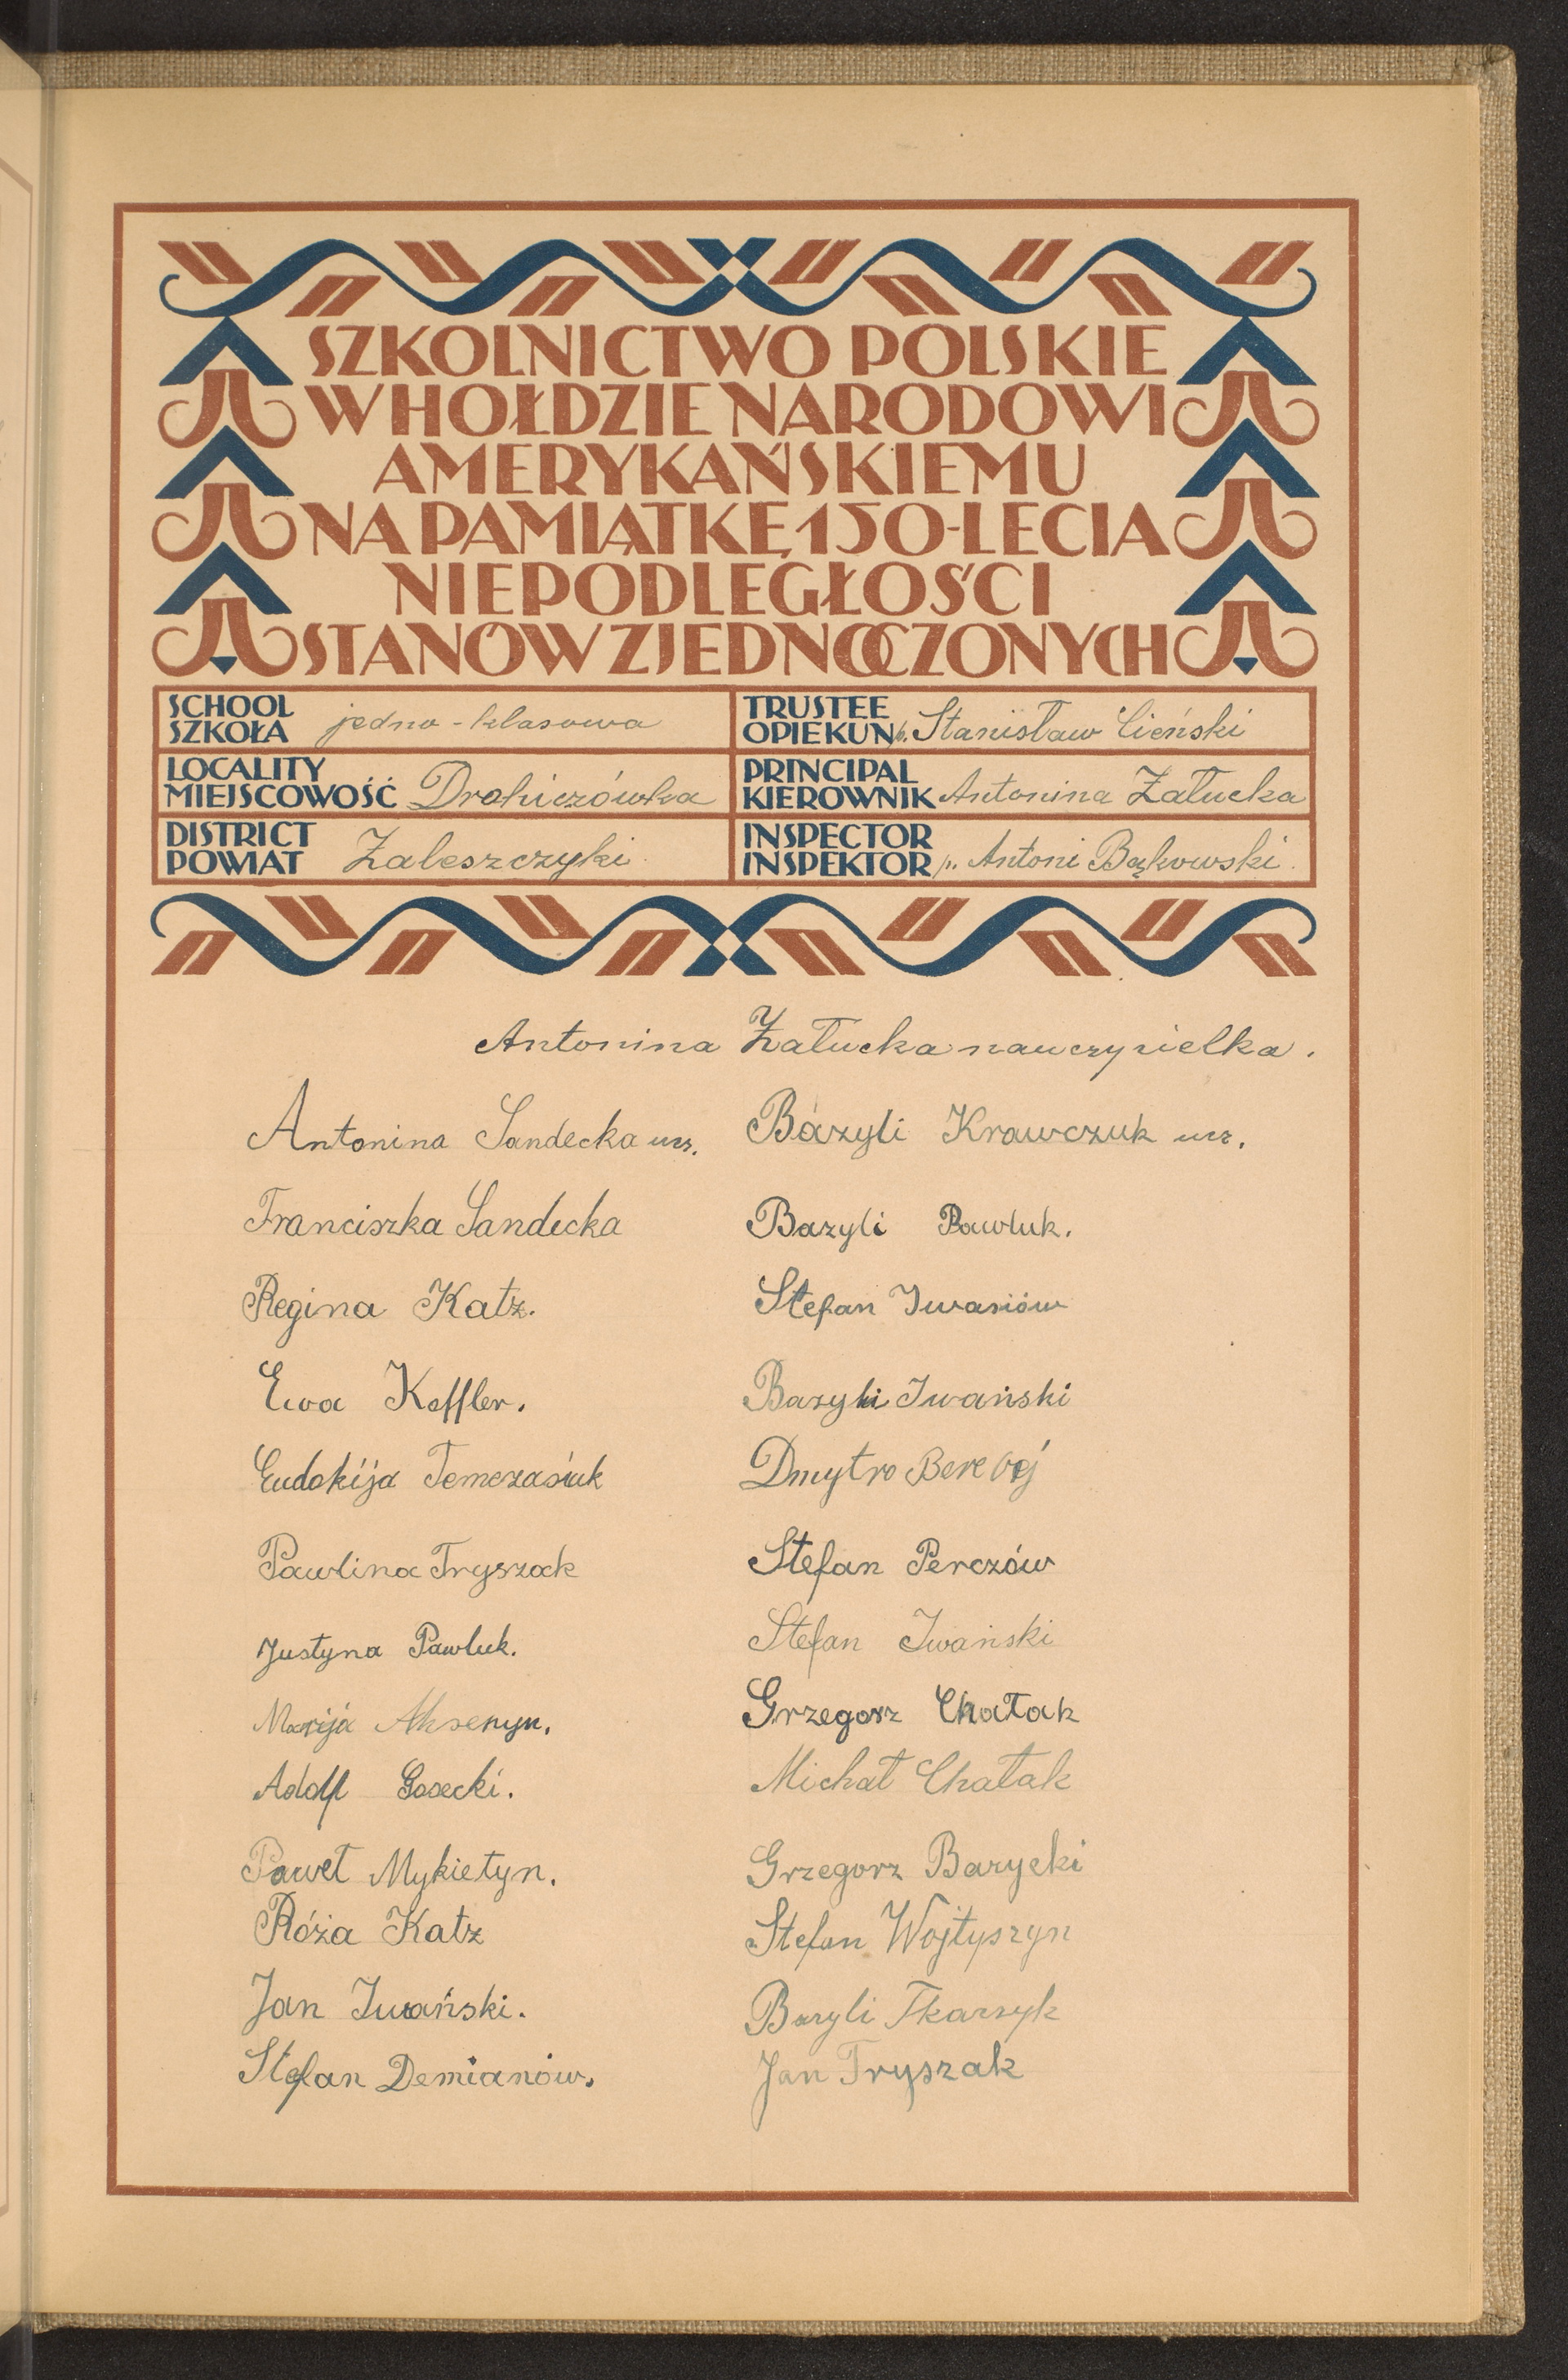 SZKOLNICTWO POLSKIE
W HOŁDZIE NARODOWI
AMERYKAŃSKIEMU
NA PAMIĄTKĘ 150-LECIA
NIEPODLEGŁOŚCI
STANÓW ZJEDNOCZONYCH
SCHOOL
SZKOŁA jedno-klasowa
TRUSTEE
OPIEKUN p. Stanisław Cieński
LOCALITY
MIEJSCOWOŚĆ Drohiczówka
PRINCIPAL
KIEROWNIK Antonina Załucka
DISTRICT
POWIAT Zaleszczyki
INSPECTOR
INSPEKTOR p. Antoni Bąkowski.
Antonina Załucka nauczycielka.
Antonina Sandecka ucz.
Franciszka Sandecka
Regina Katz.
Ewa Keffler.
Eudokija Temczasiuk
Pawlina Tryszak
Justyna Pawluk.
Marija Aksenyn.
Adolf
Paweł Mykietyn.
Róża Katz
Jan Iwański.
Stefan Demianów.
Bazyli Krawczuk ucz.
Bazyli Pawluk.
Stefan Iwasiów
Bazyli Iwański
Dmytro
Stefan Perczów
Stefan Iwański
Grzegorz Chałak
Michał Chałak
Grzegorz Barycki
Stefan Wojtyszyn
Bazyli Tkarzyk
Jan Tryszak